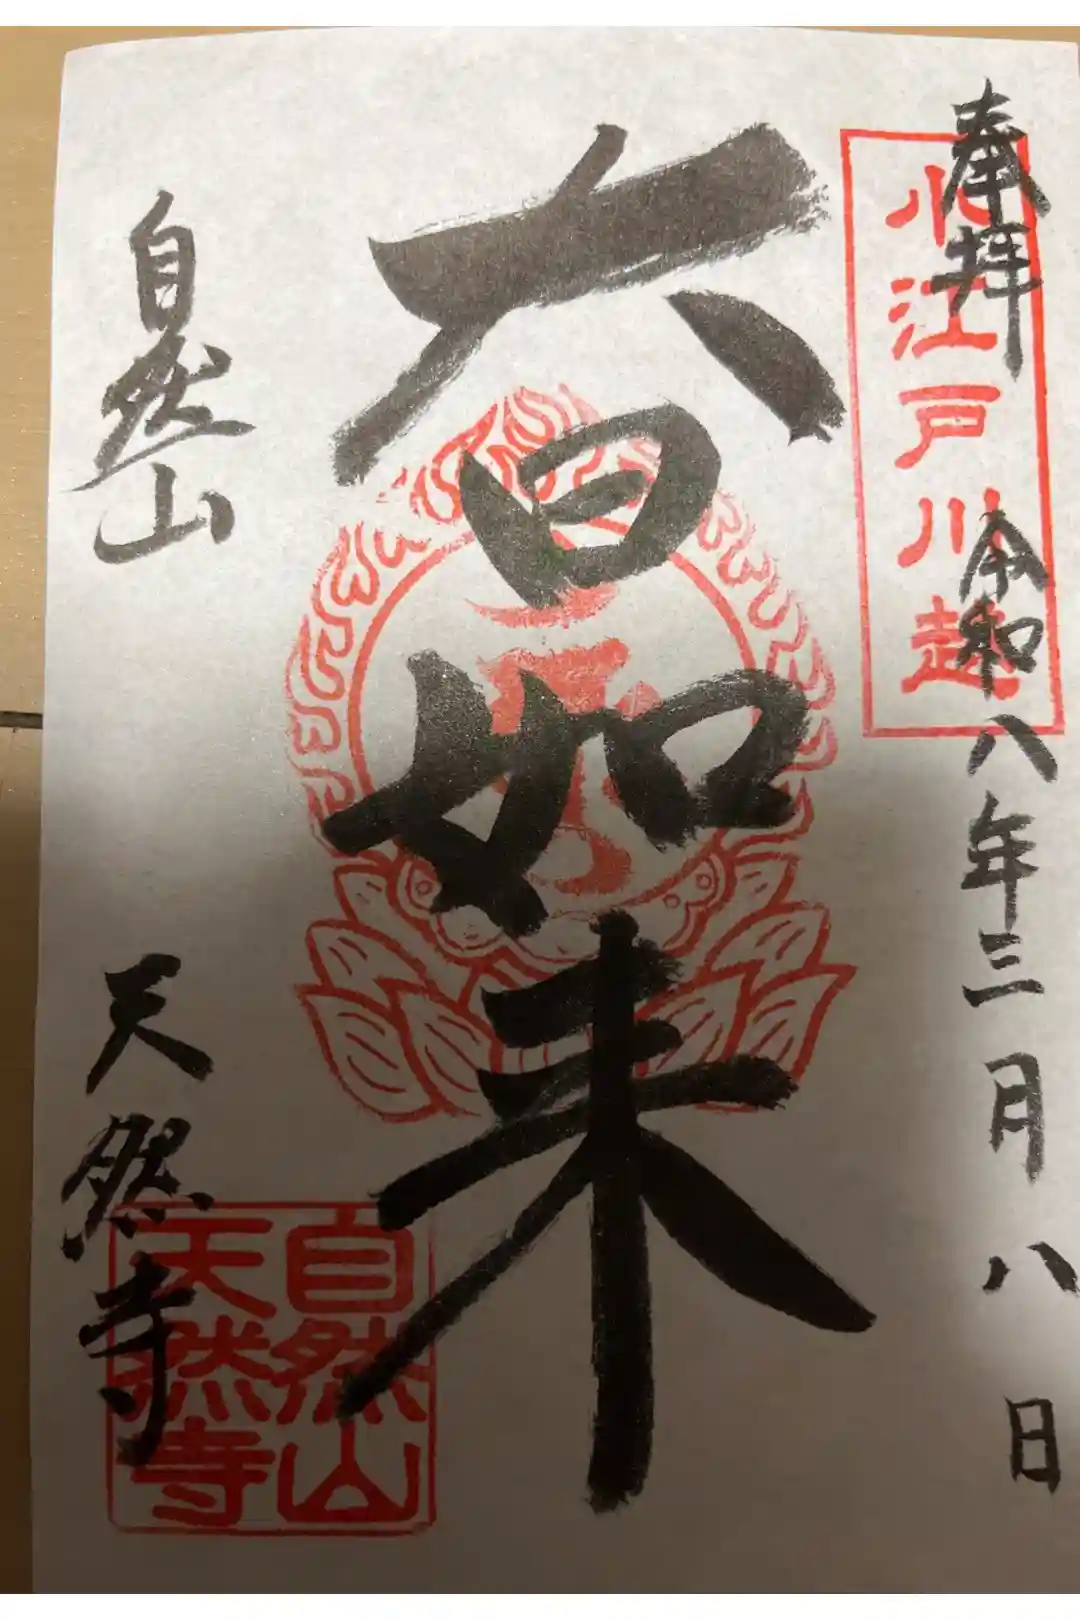 奉拝 令和八年三月八日
小江戸川越
大日如来
自然山
天然寺
自然山
天然寺